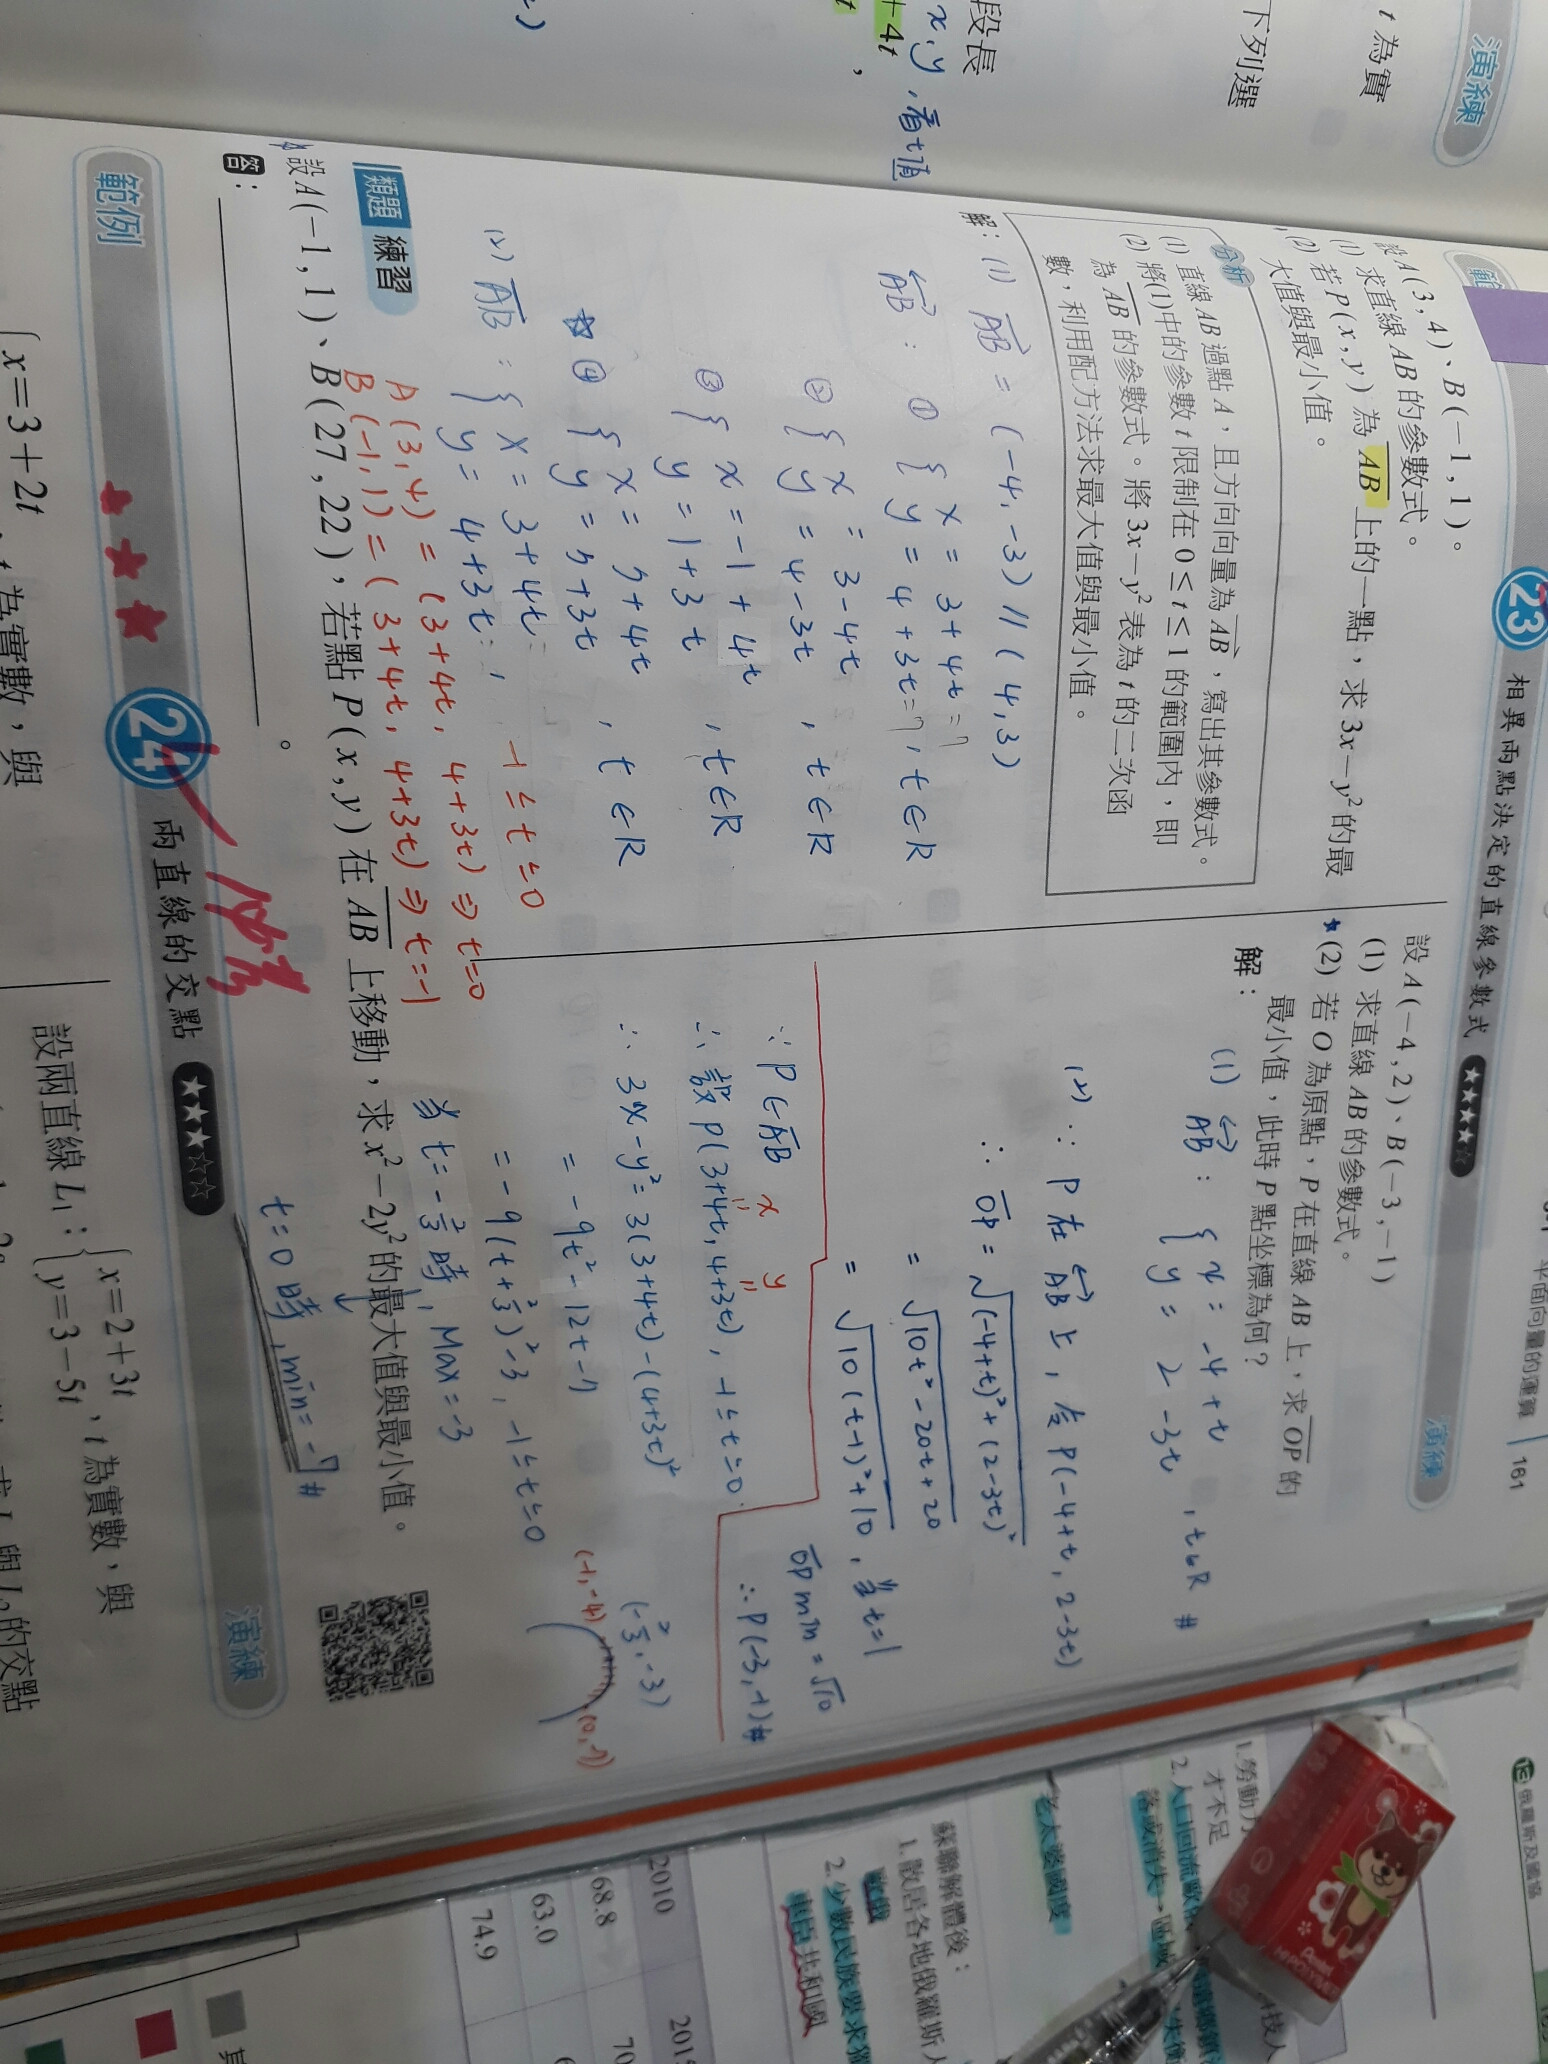 演練
t 為實
下列選
段長
x,y,看t值
+4t
t ,
平面向量的運算 161
23 相異兩點決定的直線參數式 ★★★★☆
演練
設A(3,4)、B(-1,1)。
(1) 求直線 AB 的參數式。
(2) 若 P(x,y) 為 AB 上的一點,求 3x-y²的最
大值與最小值。
分析
(1) 直線 AB 過點 A,且方向量為 AB,寫出其參數式。
(2) 將(1)中的參數 t 限制在 0≤t≤1 的範圍內,即
為 AB 的參數式。將 3x-y² 表為 t 的二次函
數,利用配方法求最大值與最小值。
解:(1) AB = (-4,-3) // (4,3)
AB: ① { x = 3+4t=7
y = 4+3t=7, t∈R
② { x = 3-4t
y = 4-3t , t∈R
③ { x = -1+4t
y = 1+3t , t∈R
☆ ④ { x = 7+4t
y = 7+3t , t∈R
(2) AB: { x = 3+4t
y = 4+3t , -1≤t≤0
A(3,4) = (3+4t, 4+3t) ⇒ t=0
B(-1,1) = (3+4t, 4+3t) ⇒ t=-1
設 A(-4,2)、B(-3,-1)
(1) 求直線 AB 的參數式。
(2) 若 O 為原點,P 在直線 AB 上,求 OP 的
最小值,此時 P 點坐標為何?
解:
(1) AB: { x = -4+t
y = 2-3t , t∈R #
(2) ∵ P 在 AB 上,令 P(-4+t, 2-3t)
∴ OP = √(-4+t)²+(2-3t)²
= √10t²-20t+20
= √10(t-1)²+10 , 當 t=1
OP min = √10
∴ P(-3,-1)#
∵ P∈AB
x y
∴ 設 P(3+4t, 4+3t), -1≤t≤0.
∴ 3x-y² = 3(3+4t)-(4+3t)²
= -9t²-12t-7
= -9(t+2/3)²-3, -1≤t≤0
當 t=-2/3 時, Max=-3
t=0 時, min=-7 #
(-2/3,-3)
(-1,-4)
(0,-7)
類題 練習
設A(-1,1)、B(27,22),若點 P(x,y) 在 AB 上移動,求 x²-2y² 的最大值與最小值。
答: 。
範例
24 兩直線的交點 ★★★☆☆
演練
x=3+2t
, t 為實數,與
設兩直線 L₁:{ x=2+3t
y=3-5t , t 為實數,與
的交點
13 俄羅斯及獨協
1.勞動力
才不足
2.人口回流
老大
蘇聯解體後:
1.散居各地俄羅斯人
2.少數民族要求獨
車臣共和國
2010
68.8
63.0
74.9
Pentel
HI-POLYMER